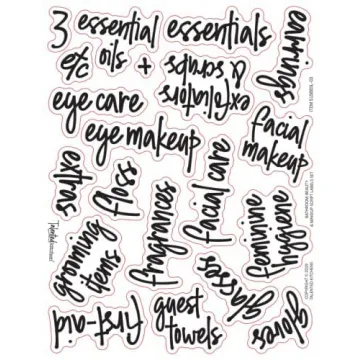 3 essential essentials
etc oils + exfoliators
& scrubs
earrings
eye care
eye makeup
facial
makeup
extras
floss
fragrances
facial care
feminine
hygiene
grooming
items
glasses
first-aid
guest
towels
gloves
Talented Kitchen
BATHROOM BEAUTY
& MAKEUP SCRIPT LABELS SET
COPYRIGHT © 2021
TALENTED KITCHEN